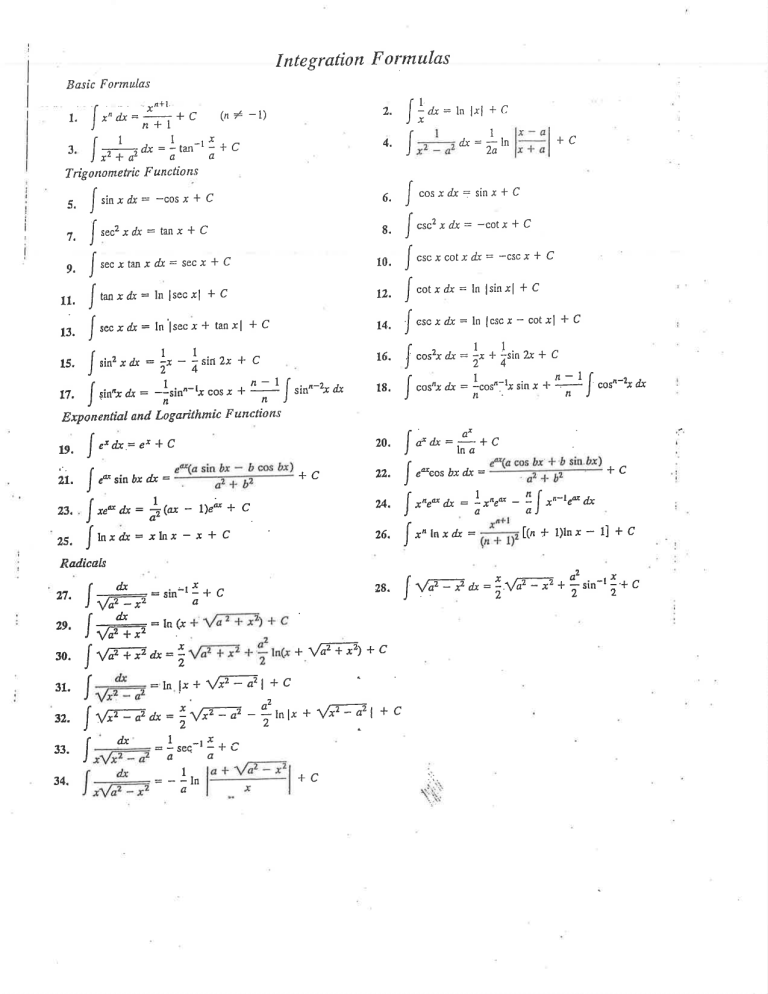 Integration Formulas
Basic Formulas
1. ∫ xⁿ dx = xⁿ⁺¹/(n + 1) + C (n ≠ −1)
2. ∫ 1/x dx = ln |x| + C
3. ∫ 1/(x² + a²) dx = 1/a tan⁻¹ x/a + C
4. ∫ 1/(x² − a²) dx = 1/2a ln |(x − a)/(x + a)| + C
Trigonometric Functions
5. ∫ sin x dx = −cos x + C
6. ∫ cos x dx = sin x + C
7. ∫ sec² x dx = tan x + C
8. ∫ csc² x dx = −cot x + C
9. ∫ sec x tan x dx = sec x + C
10. ∫ csc x cot x dx = −csc x + C
11. ∫ tan x dx = ln |sec x| + C
12. ∫ cot x dx = ln |sin x| + C
13. ∫ sec x dx = ln |sec x + tan x| + C
14. ∫ csc x dx = ln |csc x − cot x| + C
15. ∫ sin² x dx = 1/2 x − 1/4 sin 2x + C
16. ∫ cos²x dx = 1/2 x + 1/4 sin 2x + C
17. ∫ sinⁿx dx = −1/n sinⁿ⁻¹x cos x + (n − 1)/n ∫ sinⁿ⁻²x dx
18. ∫ cosⁿx dx = 1/n cosⁿ⁻¹x sin x + (n − 1)/n ∫ cosⁿ⁻²x dx
Exponential and Logarithmic Functions
19. ∫ eˣ dx = eˣ + C
20. ∫ aˣ dx = aˣ/ln a + C
21. ∫ eᵃˣ sin bx dx = eᵃˣ(a sin bx − b cos bx)/(a² + b²) + C
22. ∫ eᵃˣcos bx dx = eᵃˣ(a cos bx + b sin bx)/(a² + b²) + C
23. ∫ xeᵃˣ dx = 1/a² (ax − 1)eᵃˣ + C
24. ∫ xⁿeᵃˣ dx = 1/a xⁿeᵃˣ − n/a ∫ xⁿ⁻¹eᵃˣ dx
25. ∫ ln x dx = x ln x − x + C
26. ∫ xⁿ ln x dx = xⁿ⁺¹/(n + 1)² [(n + 1)ln x − 1] + C
Radicals
27. ∫ dx/√(a² − x²) = sin⁻¹ x/a + C
28. ∫ √(a² − x²) dx = x/2 √(a² − x²) + a²/2 sin⁻¹ x/2 + C
29. ∫ dx/√(a² + x²) = ln (x + √(a² + x²)) + C
30. ∫ √(a² + x²) dx = x/2 √(a² + x²) + a²/2 ln(x + √(a² + x²)) + C
31. ∫ dx/√(x² − a²) = ln |x + √(x² − a²)| + C
32. ∫ √(x² − a²) dx = x/2 √(x² − a²) − a²/2 ln |x + √(x² − a²)| + C
33. ∫ dx/(x√(x² − a²)) = 1/a sec⁻¹ x/a + C
34. ∫ dx/(x√(a² − x²)) = − 1/a ln |(a + √(a² − x²))/x| + C